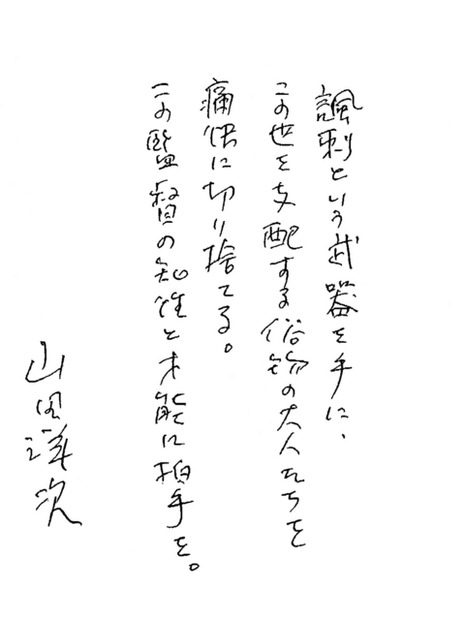 諷刺という武器を手に、
この世を支配する俗物の大人たちを
痛快に切り捨てる。
この監督の知性と才能に拍手を。
山田洋次